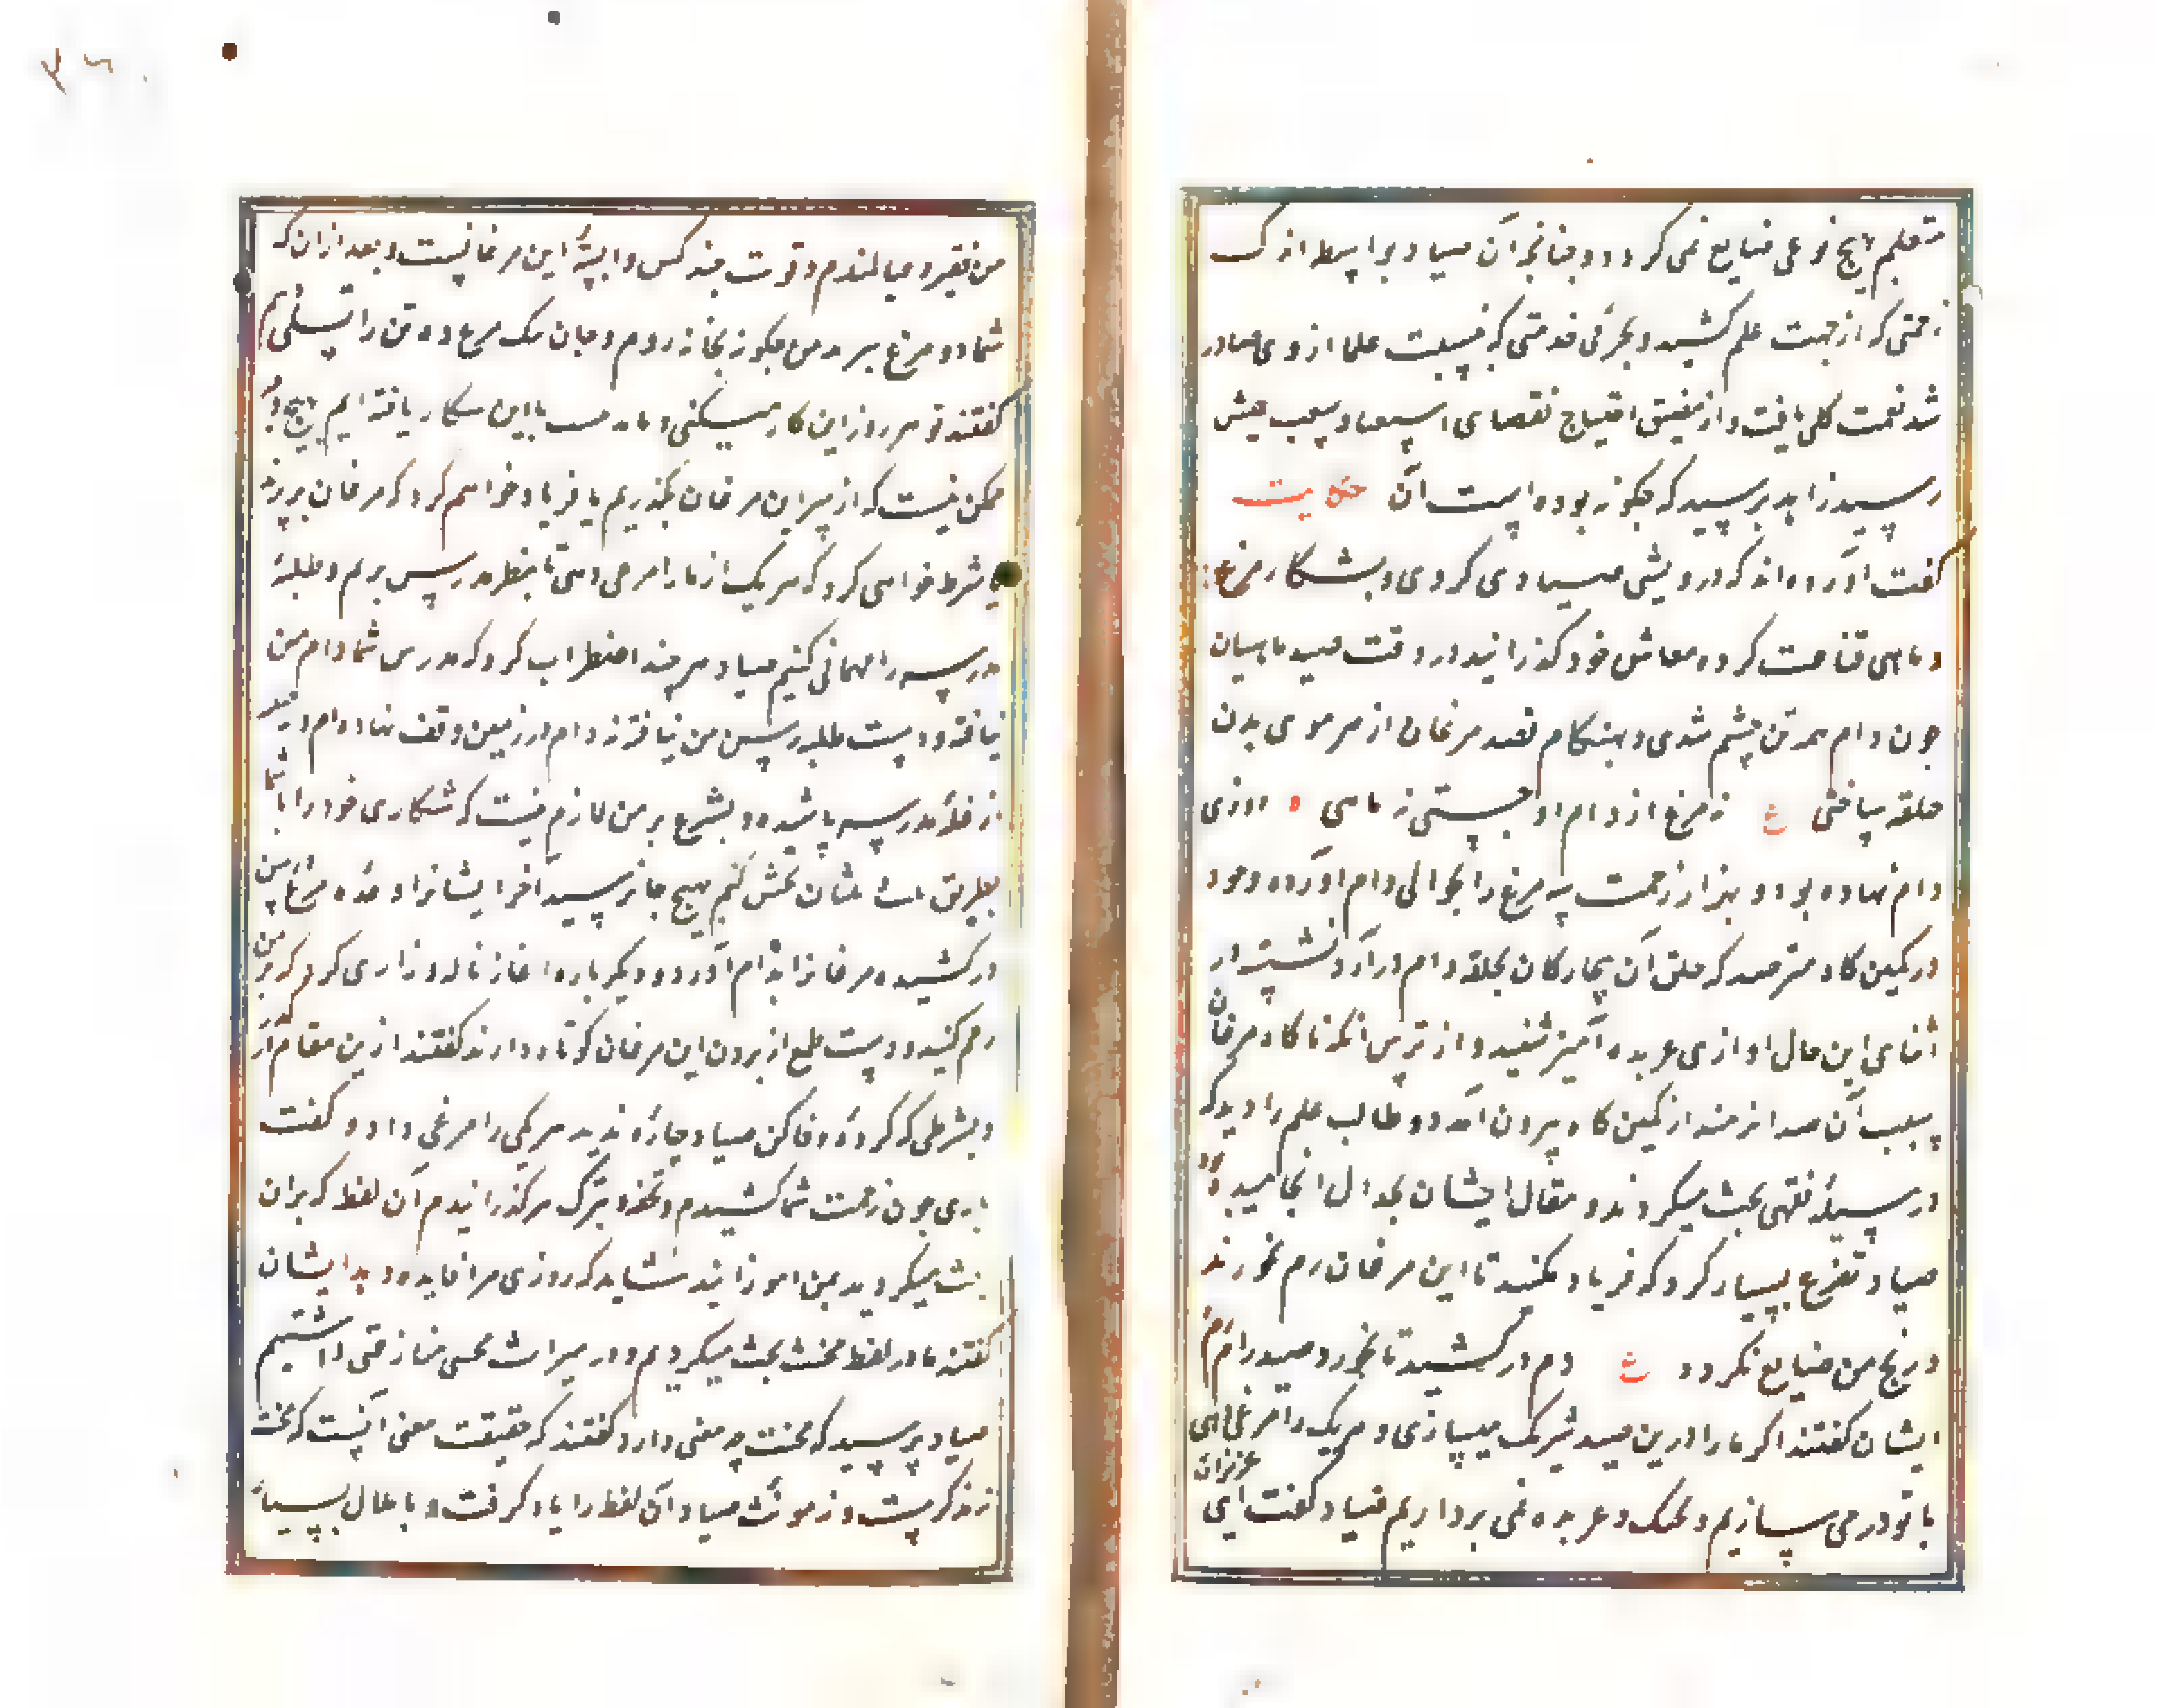 متعلم هیچ نوعی ضایع نمی کردد و چنانچه آن صیاد بواسطه اندک
زحمتی که از جهت علم کشید و بجزئی خدمتی که بنسبت علما از وی صادر
شد نعمت کلی یافت و از مضیق احتیاج بفضای وسعت عیش
رسید زاهد پرسید که چکونه بوده است آن حکایت
کفت آورده اند که درویشی صیادی کردی و بشکار مرغ
و ماهی قناعت کرده معاش خود کذرانیدی در وقت صید ماهیان
چون دام همه تن چشم شدی و بهنکام قصد مرغان از هر موی بدن
حلقه ساختی ع نه مرغ از دام او جستی نه ماهی ه روزی
دام نهاده بود و بهزار زحمت سه مرغ را بحوالی دام آورده و خود
در کمین کاه مترصد که حلق آن بیچارکان بحلقه دام در آرد نشسته در
اثنای این حال آوازی عربده آمیز شنید و از ترس آنکه ناکاه مرغان
بسبب آن صدا نرمند از کمین کاه بیرون آمد دو طالب علم را دید که
در مسئله فقهی بحث میکردند و مقال ایشان بجدال انجامیده
صیاد تضرع بسیار کرد که فریاد مکنید تا این مرغان رم نخورند
و رنج من ضایع نکردد ع دم در کشید تا نخورد صید رام رم
ایشان کفتند اکر ما را درین صید شریک میسازی و هر یک را مرغی میدهی
با تو در می سازیم و جنک و عربده نمی برداریم صیاد کفت ای عزیزان
من فقیر و عیالمندم و قوت چند کس وابسته این مرغانست و بعد از آن که
شما دو مرغ ببرید من چکونه بخانه روم و بدان یک مرغ ده تن را تسلی دهم
کفتند تو هر روز این کار میکنی و ما مدتیست باین شکار یافته ایم هیچ وجه
ممکن نیست که از سر این مرغان بکذریم یا فریاد خواهیم کرد که مرغان بپرند
یا شرط خواهی کرد که هر یک از ما را مرغی دهی تا بنظر مدرس بریم و طلبه
مدرسه را مهمانی کنیم صیاد هر چند اضطراب کرد که مدرس شما دام من
نیافته و دست طلبه رسن من نیافته نه دام در زمین وقف نهاده ام و نه دانه
از غله مدرسه پاشیده و بشرع بر من لازم نیست که شکاری خود را با شما
بطریق ثلث و ثلثان بخش کنم هیچ جا نرسید آخر ایشانرا وعده مرغ داد و رسن
در کشیده مرغانرا بدام آورد و دیکر باره آغاز ناله و زاری کرد که بر من
رحم کنید و دست طمع از بردن این مرغان کوتاه دارید کفتند ازین مقام در کذر
و بشرطی که کرده وفا کن صیاد چاره ندید هر یکی را مرغی داد و کفت
باری چون زحمت شما کشیدم و بحق شرک هر کذرانیدم آن لفظ که بران
بحث میکردید بمن آموزانید شاید که روزی مرا فایده دهد ایشان
کفتند ما در لفظ مخنث بحث میکردیم و در میراث خنثی منازعتی داشتیم
صیاد پرسید که مخنث چه معنی دارد کفتند که حقیقت معنی آنست که مخنث
نه مذکرست و نه مونث صیاد آن لفظ را یاد کرفت و با ملال بسیار